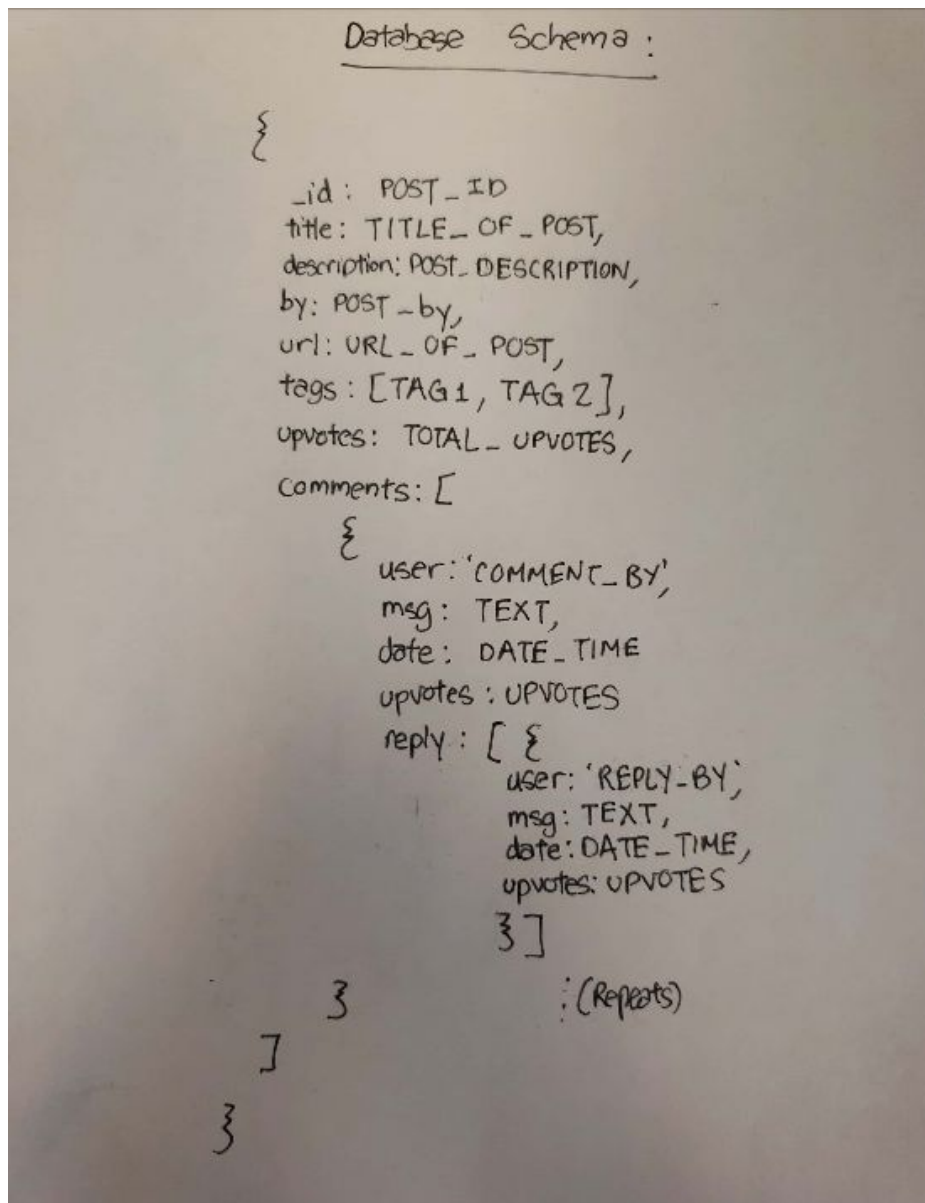 Database Schema :
{
_id : POST_ID
title : TITLE_OF_POST,
description: POST_DESCRIPTION,
by: POST_by,
url: URL_OF_POST,
tags : [TAG1, TAG2],
upvotes: TOTAL_UPVOTES,
Comments: [
{
user: 'COMMENT_BY',
msg : TEXT,
date : DATE_TIME
upvotes : UPVOTES
reply : [ {
user: 'REPLY_BY',
msg: TEXT,
date: DATE_TIME,
upvotes: UPVOTES
} ]
} ⋮ (Repeats)
]
}